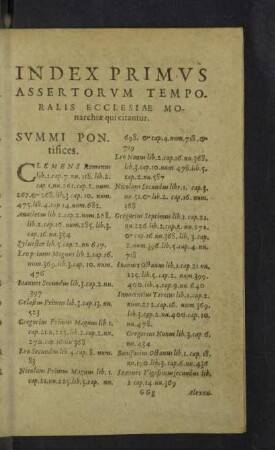 INDEX PRIMVS
ASSERTORVM TEMPO-
RALIS ECCLESIAE MO-
narchiæ qui citantur.
SVMMI PON-
tifices.
CLEMENS Romanus
lib.1.cap.7. nn. 118. lib.2.
cap.1.nn.261.cap.2. num.
267.&. 268.lib.3 cap. 10. num.
475.lib.4.cap.14.num.682.
Anacletus lib.2.cap.2.num 268.
lib.2.cap.16. num.285. lib.3.
cap.16.nn.354
Syluester lib.5.cap.2.nn 697.
Leo primus Magnus lib.2.cap.16.
num.369.lib.3.cap. 10. num.
476
Ioannes Secundus lib.3.cap.2.nn.
397
Gelasius Primus lib.3.cap.13. nn.
523
Gregorius Primus Magnus lib. 1.
cap.21.nn. 223. lib.2.cap.2.nn.
270.cap.16.nn 368
Leo Secundus lib.4.cap.8. num.
83
Nicolaus Primus Magnus lib.
1.cap.22.nn.225.lib.5.cap. nn.
698. & cap.4.num.718.&
719
Leo Nonus lib.2.cap.16. nn.368,
lib.3.cap.10.num.478.lib.5.
cap.2.nn.587
Nicolaus Secundus lib.1. cap.3.
nn.51.& lib.2. cap.16. nn.368
Gregorius Septimus lib.1. cap.21.
nn.226.lib.2.cap.2. nn. 271.
& cap.16.nn.368. lib.3. cap.
2.num.398.lib.5.cap.4. nn.
718
Ioannes Octauus lib.1.cap.21.nn.
225.lib.3. cap.2. num.399.
400.lib.4.cap.9. nn.640
Innocentius Tertius lib.2.cap.2.
num.272.lib.2.cap.16. nn.
368.lib.3.cap.2.nn.400.cap.10.
nn.478.
Gregorius Nonus lib.3.cap.6.
nn.434
Bonifacius Octauus lib.1. cap.18.
nn.190.lib.3.cap.6. nn.436
Ioannes Vigesimus secundus lib.
2.cap.14.nn.369
GGg Alexan-